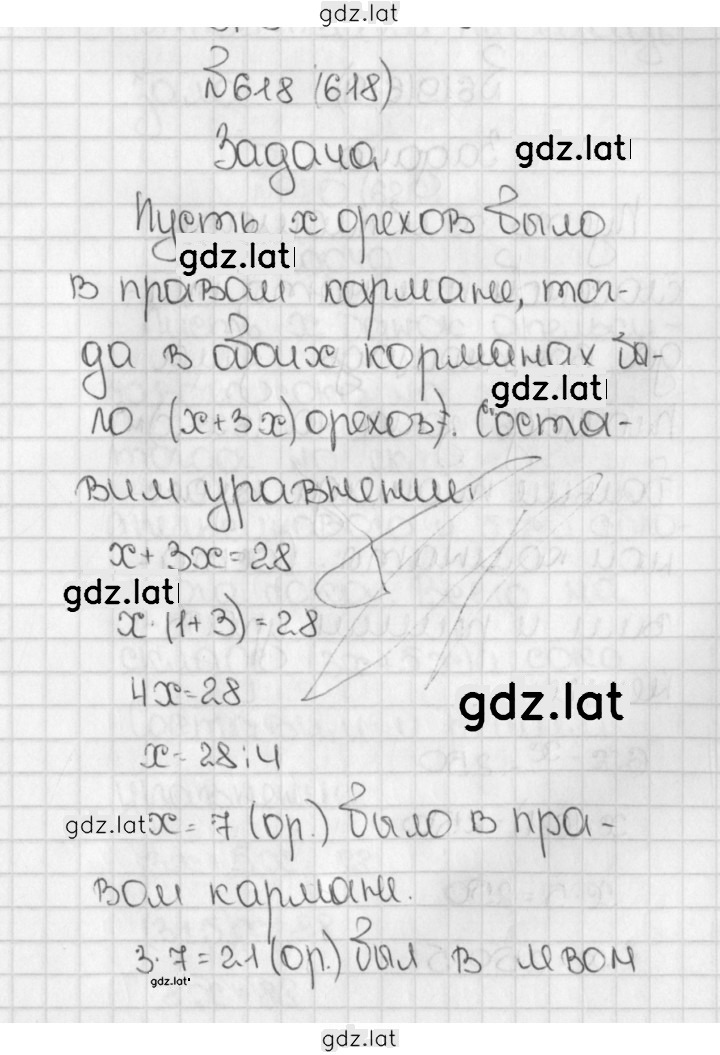 gdz.lat
№618 (618)
Задача
gdz.lat
Пусть x орехов было
gdz.lat
в правом кармане, тог-
да в обоих карманах бы-
gdz.lat
ло (x+3x) орехов. Соста-
вим уравнение.
x+3x=28
gdz.lat
x·(1+3)=28
4x=28
gdz.lat
x=28:4
gdz.lat x=7 (ор.) было в пра-
вом кармане.
3·7=21 (ор.) был в левом
gdz.lat
gdz.lat